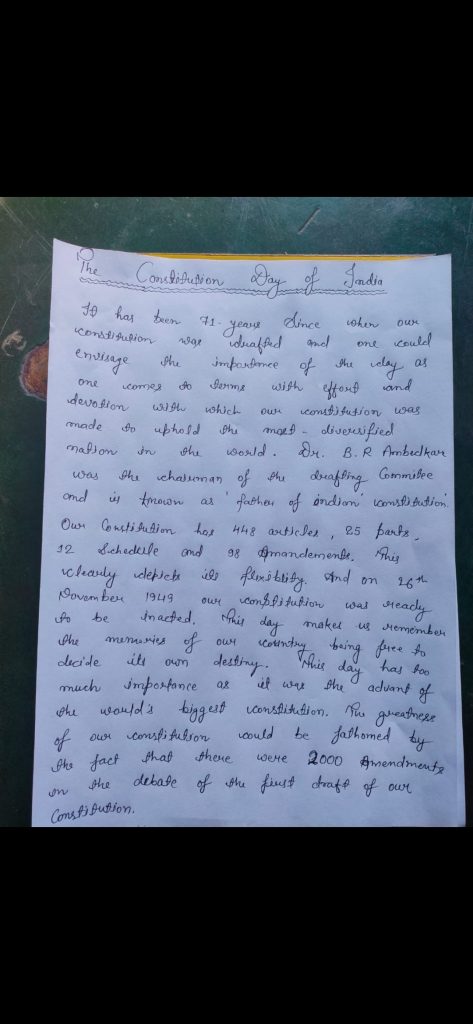 The Constitution Day of India
It has been 71 - years Since when our
constitution was drafted and one could
envisage the importance of the day as
one comes to terms with effort and
devotion with which our constitution was
made to uphold the most - diversified
nation in the world. Dr. B. R Ambedkar
was the chairman of the drafting Commitee
and is known as 'father of indian constitution'
Our Constitution has 448 articles, 25 parts,
12 Schedule and 98 Amandements. This
clearly depicts its flexiblity. And on 26th
November 1949 our constitution was ready
to be inacted. This day makes us remember
the memories of our country being free to
decide its own destiny. This day has too
much importance as it was the advant of
the would's biggest constitution. The greatness
of our constitution could be fathomed by
the fact that there were 2000 Amendments
in the debate of the first draft of our
Constitution.